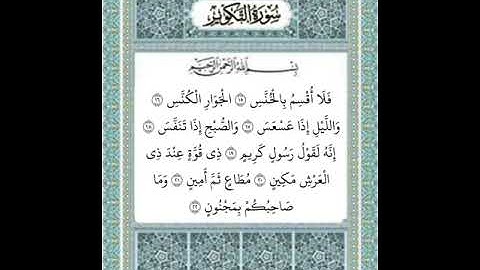 سُورَةُ التَّكْوِير
بِسْمِ اللَّهِ الرَّحْمَٰنِ الرَّحِيمِ
فَلَا أُقْسِمُ بِالْخُنَّسِ ١٥ الْجَوَارِ الْكُنَّسِ ١٦
وَاللَّيْلِ إِذَا عَسْعَسَ ١٧ وَالصُّبْحِ إِذَا تَنَفَّسَ ١٨
إِنَّهُ لَقَوْلُ رَسُولٍ كَرِيمٍ ١٩ ذِى قُوَّةٍ عِنْدَ ذِى
الْعَرْشِ مَكِينٍ ٢٠ مُطَاعٍ ثَمَّ أَمِينٍ ٢١ وَمَا
صَاحِبُكُمْ بِمَجْنُونٍ ٢٢